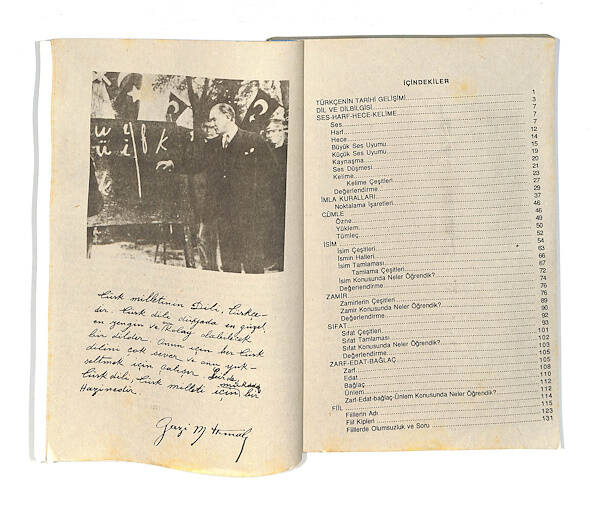 Türk milletinin Dili, Türkçe-
dir. Türk dili dünyada en güzel,
en zengin ve Kolay olabilecek
bir dildir. Onun için her Türk
dilini çok sever ve onu yük-
seltmek için çalışır.
Türk dili, Türk milleti için, bir
Hazinedir.
Gazi M Kemal
İÇİNDEKİLER
TÜRKÇENİN TARİHİ GELİŞİMİ 1
DİL VE DİLBİLGİSİ 3
SES-HARF-HECE-KELİME 7
Ses 7
Harf 7
Hece 12
Büyük Ses Uyumu 14
Küçük Ses Uyumu 15
Kaynaşma 19
Ses Düşmesi 20
Kelime 21
Kelime Çeşitleri 23
Değerlendirme 27
İMLA KURALLARI 29
Noktalama İşaretleri 37
CÜMLE 46
Özne 46
Yüklem 49
Tümleç 50
İSİM 52
İsim Çeşitleri 54
İsmin Halleri 63
İsim Tamlaması 66
Tamlama Çeşitleri 67
İsim Konusunda Neler Öğrendik? 72
Değerlendirme 74
ZAMİR 76
Zamirlerin Çeşitleri 76
Zamir Konusunda Neler Öğrendik? 89
Değerlendirme 90
SIFAT 92
Sıfat Çeşitleri 93
Sıfat Tamlaması 101
Sıfat Konusunda Neler Öğrendik? 102
Değerlendirme 103
ZARF-EDAT-BAĞLAÇ 105
Zarf 105
Edat 108
Bağlaç 110
Ünlem 112
Zarf-Edat-bağlaç-Ünlem Konusunda Neler Öğrendik? 112
FİİL 114
Fiillerin Adı 115
Fiil Kipleri 123
Fiillerde Olumsuzluk ve Soru 131